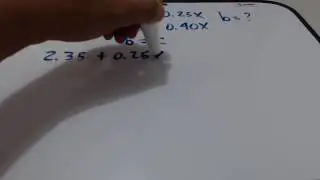 0.25x b=?
0.40x
b =
2.35 + 0.25x